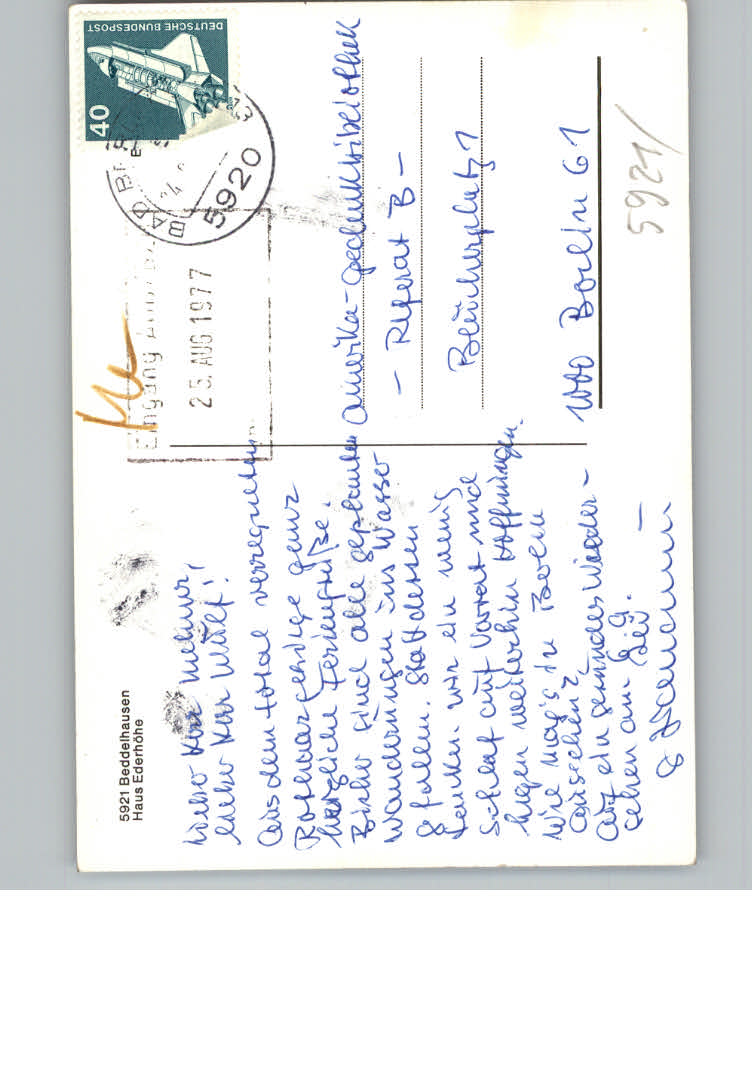 5921 Beddelhausen
Haus Ederhöhe
Lieber Herr
lieber Herr Wolf!
Aus dem total verregneten
Rothaargebirge ganz
herzliche Feriengrüße.
Bisher sind alle geplanten
Wanderungen ins Wasser
gefallen. Stattdessen
tanken wir ein wenig
Schlaf auf Vorrat und
hegen weiterhin Hoffnungen.
Wie mag's in Berlin
aussehen?
Auf ein gesundes Wieder-
sehen am 6.9.
Ihr
DEUTSCHE BUNDESPOST
40
BAD
5920
Eingang
25. AUG 1977
Amerika-Gedenkbibliothek
- Referat B -
Blücherplatz 1
1000 Berlin 61
5921/